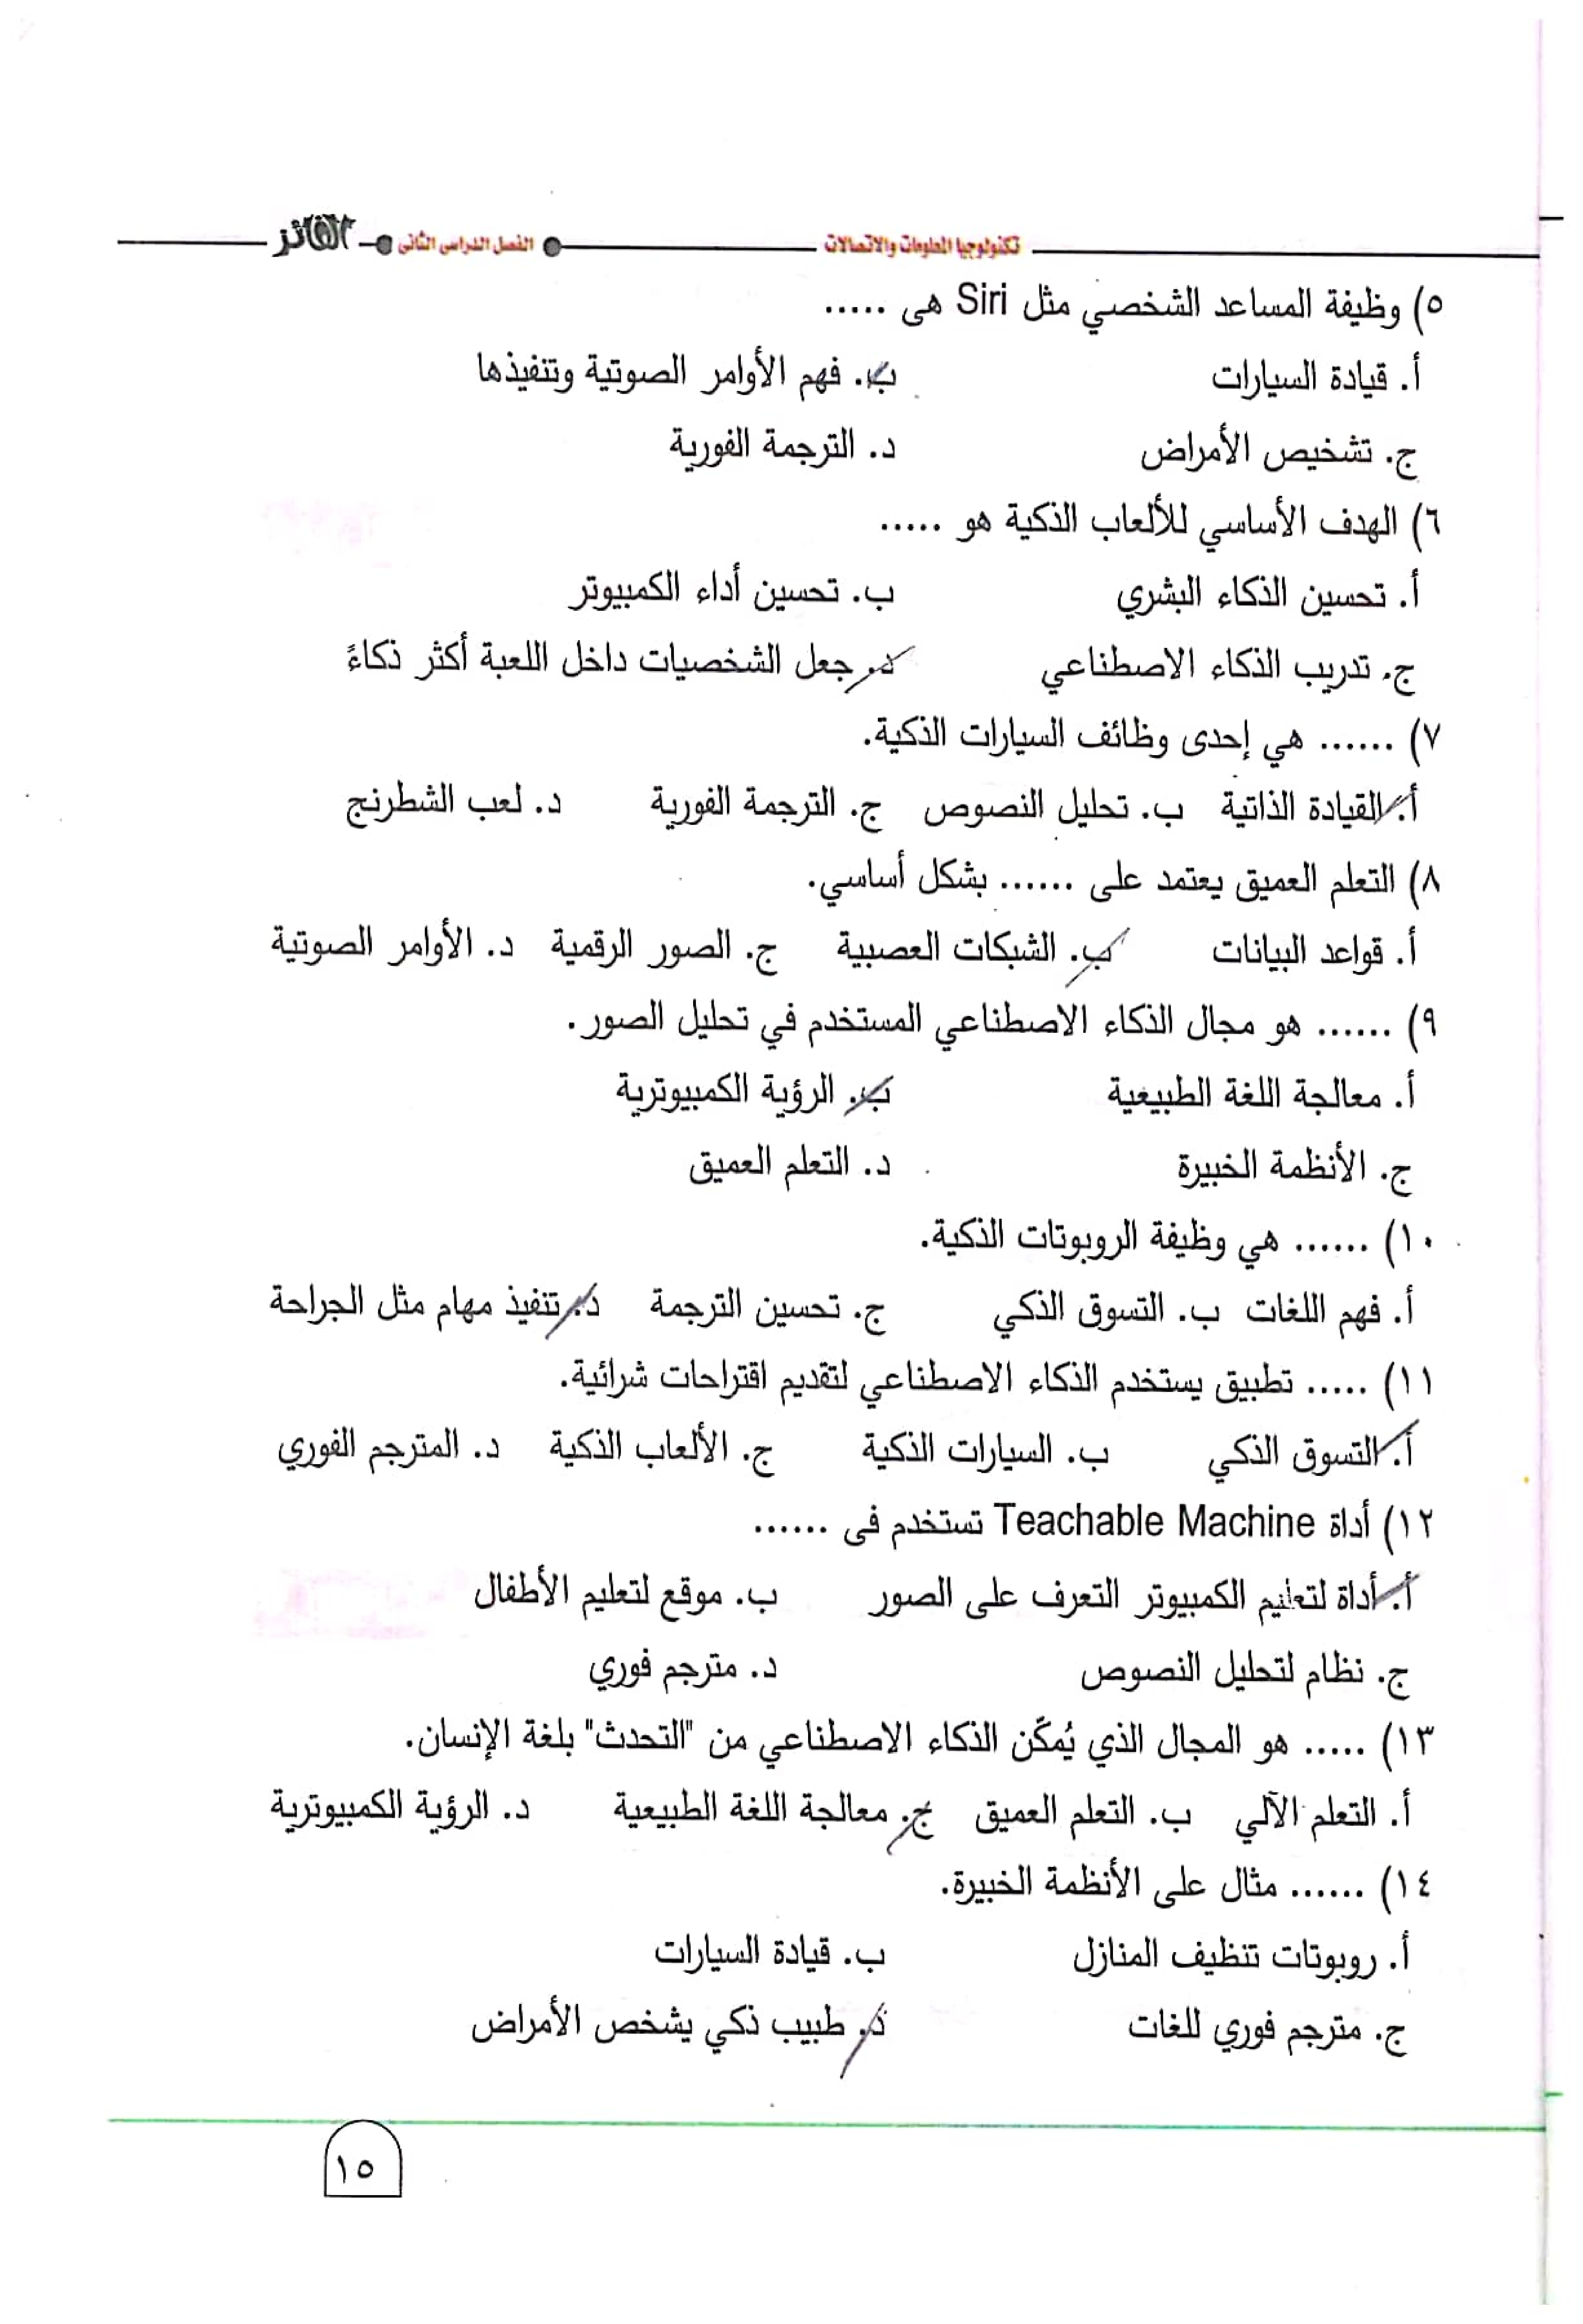 تكنولوجيا المعلومات والاتصالات الفصل الدراسى الثانى الفائز
٥) وظيفة المساعد الشخصي مثل Siri هى .....
أ. قيادة السيارات ب. فهم الأوامر الصوتية وتنفيذها
ج. تشخيص الأمراض د. الترجمة الفورية
٦) الهدف الأساسي للألعاب الذكية هو .....
أ. تحسين الذكاء البشري ب. تحسين أداء الكمبيوتر
ج. تدريب الذكاء الاصطناعي د. جعل الشخصيات داخل اللعبة أكثر ذكاءً
٧) ...... هي إحدى وظائف السيارات الذكية.
أ. القيادة الذاتية ب. تحليل النصوص ج. الترجمة الفورية د. لعب الشطرنج
٨) التعلم العميق يعتمد على ...... بشكل أساسي.
أ. قواعد البيانات ب. الشبكات العصبية ج. الصور الرقمية د. الأوامر الصوتية
٩) ...... هو مجال الذكاء الاصطناعي المستخدم في تحليل الصور.
أ. معالجة اللغة الطبيعية ب. الرؤية الكمبيوترية
ج. الأنظمة الخبيرة د. التعلم العميق
١٠) ...... هي وظيفة الروبوتات الذكية.
أ. فهم اللغات ب. التسوق الذكي ج. تحسين الترجمة د. تنفيذ مهام مثل الجراحة
١١) ..... تطبيق يستخدم الذكاء الاصطناعي لتقديم اقتراحات شرائية.
أ. التسوق الذكي ب. السيارات الذكية ج. الألعاب الذكية د. المترجم الفوري
١٢) أداة Teachable Machine تستخدم فى ......
أ. أداة لتعليم الكمبيوتر التعرف على الصور ب. موقع لتعليم الأطفال
ج. نظام لتحليل النصوص د. مترجم فوري
١٣) ..... هو المجال الذي يُمكّن الذكاء الاصطناعي من "التحدث" بلغة الإنسان.
أ. التعلم الآلي ب. التعلم العميق ج. معالجة اللغة الطبيعية د. الرؤية الكمبيوترية
١٤) ...... مثال على الأنظمة الخبيرة.
أ. روبوتات تنظيف المنازل ب. قيادة السيارات
ج. مترجم فوري للغات د. طبيب ذكي يشخص الأمراض
١٥